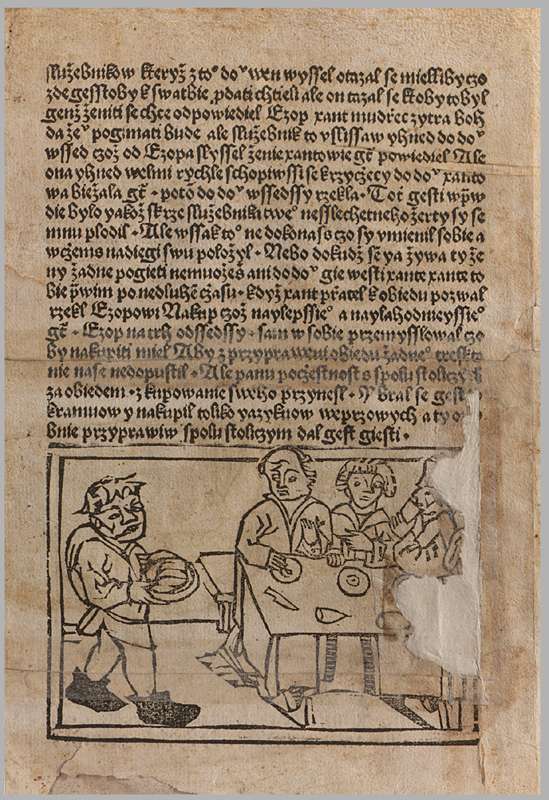 služebnikow kteryž z toº doº wen wyssel otazal se mielliby czo
zde gesstoby k swatbie ꝓdati chtieli ale on tazal se ktoby to byl
genž ženiti se chce odpowiediel Ezop xant mudrzec zytra boh
da žeˇ poginati bude ale služebnik to vslissaw yhned do doˇ
wssed czož od Ezopa slyssel ženie xantowie gt̄ powiediel Ale
ona yhned welmi rychle schopiwssi se krzyczecy do doˇ xanto
wa biežala gt̄ · potō do doˇ wssedssy rzekla · Toť gesti wp̄w
die bylo yakož skrze služebniki tweˇ nesslechetneho žerty sy se
mnu plodil · Ale wssak toˇ ne dokonas czo sy vmienil sobie a
w czems nadiegi swu položyl · Nebo dokudž se ya žywa ty že
ny žadne pogieti nemuožeš ani do doˇ gie westi xante xante to
bie p̄wim po nedluhē czasu · když xant přatel k obiedu pozwal
rzekl Ezopowi Nakup czož naylepssieˇ a naylahodnieyssieˇ
gt̄ · Ezop na trh odssedssy · sam w sobie przemysslowal czo
by nakupiti miel Aby z przyprawenu obiedu žadneˇ treskta
nie nase nedopustil · Ale panu poczestnost s spolu stolicz
za obiedem · z kupowanie sweho przynesl · Y bral se gest
kramuow y nakupil toliko yazykuow weprzowych a ty
bnie przyprawiw spolu stoliczym dal gest giesti ·